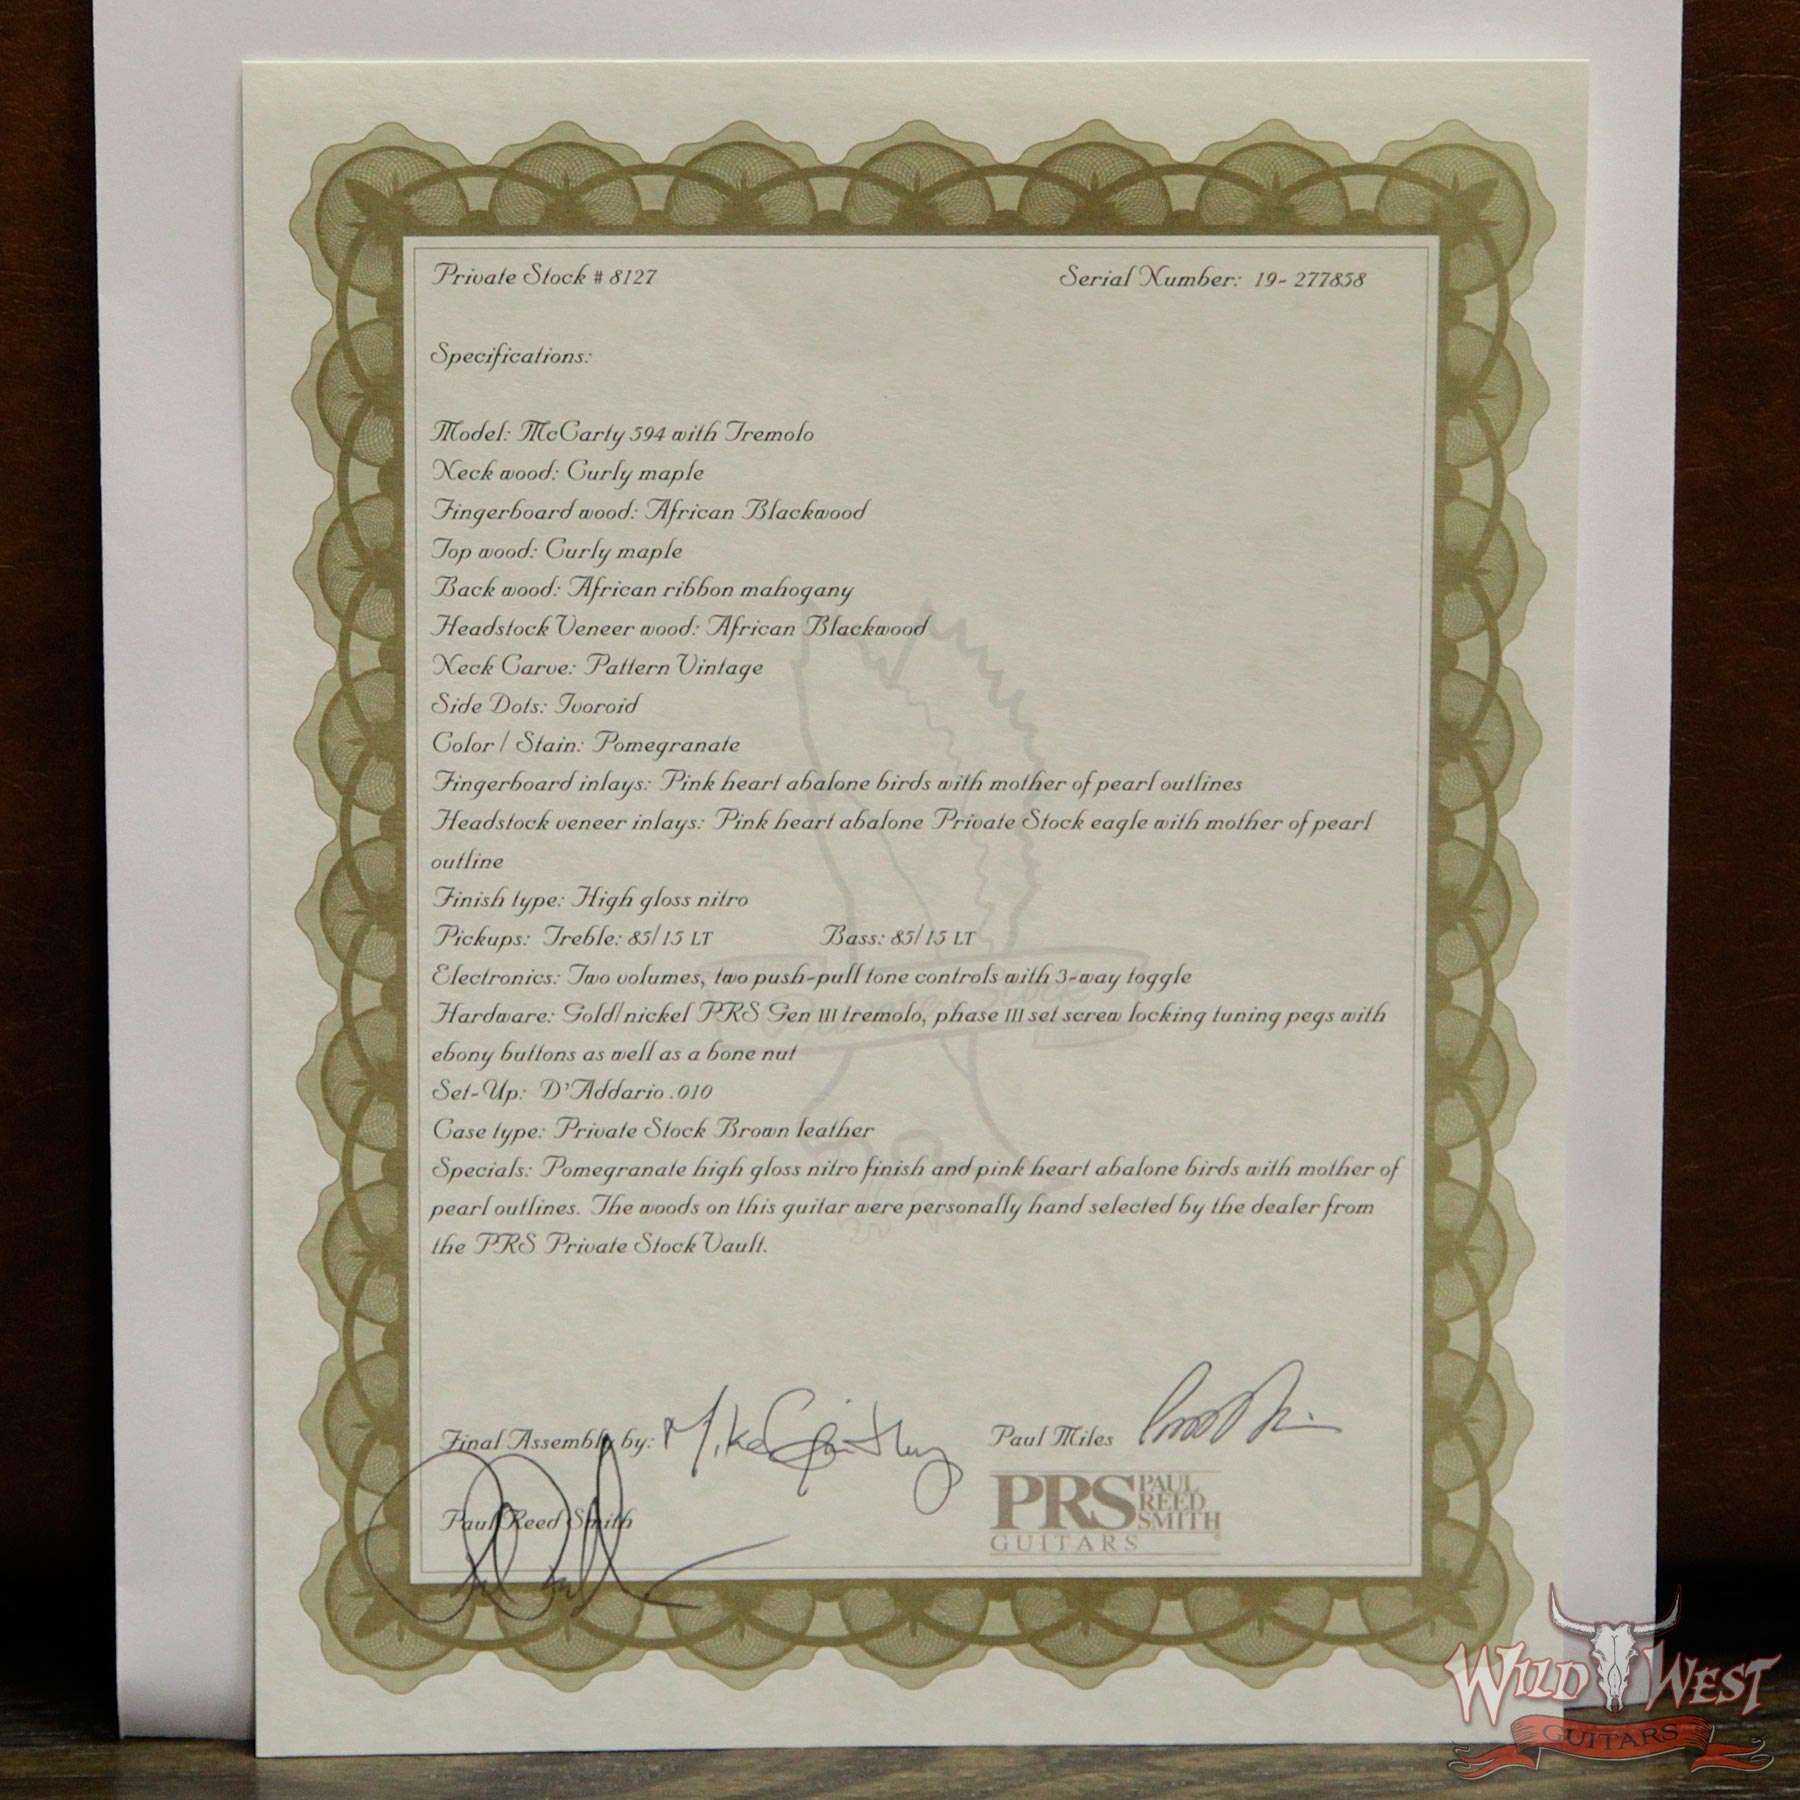 Private Stock # 8127 Serial Number: 19- 277858
Specifications:
Model: McCarty 594 with Tremolo
Neck wood: Curly maple
Fingerboard wood: African Blackwood
Top wood: Curly maple
Back wood: African ribbon mahogany
Headstock Veneer wood: African Blackwood
Neck Carve: Pattern Vintage
Side Dots: Ivoroid
Color / Stain: Pomegranate
Fingerboard inlays: Pink heart abalone birds with mother of pearl outlines
Headstock veneer inlays: Pink heart abalone Private Stock eagle with mother of pearl
outline
Finish type: High gloss nitro
Pickups: Treble: 85/15 LT Bass: 85/15 LT
Electronics: Two volumes, two push-pull tone controls with 3-way toggle
Hardware: Gold/nickel PRS Gen III tremolo, phase III set screw locking tuning pegs with
ebony buttons as well as a bone nut
Set-Up: D'Addario .010
Case type: Private Stock Brown leather
Specials: Pomegranate high gloss nitro finish and pink heart abalone birds with mother of
pearl outlines. The woods on this guitar were personally hand selected by the dealer from
the PRS Private Stock Vault.
Final Assembly by: Mike Paul Miles
Paul Reed Smith
PRS PAUL REED SMITH
GUITARS
WILD WEST
GUITARS